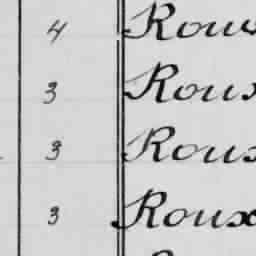 4 Roux
3 Roux
3 Roux
3 Roux